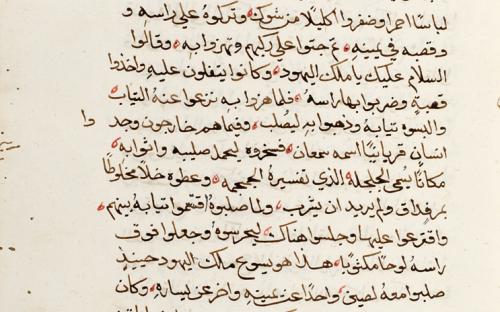 لباسًا احمرا وضفروا اكليلًا من شوك وتركوه على راسه و
وقصبه في يمينه ثم جثوا على ركبهم وتهزوا به وقالوا
السلام عليك يا ملك اليهود وكانوا يتفلون عليه واخذوا
قصبة وضربوا بها راسه فلما هزوا به نزعوا عنه الثياب
والبسوه ثيابه وذهبوا به ليُصلب وفيما هم خارجون وجد وا
انسان قريانيًا اسمه سمعان فسخروه ليحمل صليبه واتوا به
مكانًا يسمى الجلجلة الذي تفسيره الجمجمه وعطوه خلًا مخلوطًا
بمر فذاق ولم يريد ان يشرب ولما صلبوه اقتسموا ثيابه بينهم
واقترعوا عليها وجلسوا هناك ليحرسوه وجعلوا فوق
راسه لوحًا مكتوبًا هذا هو يسوع مالك اليهود حينيذٍ
صلبوا معه لصين واحدًا عن يمينه واخر عن يساره وكان